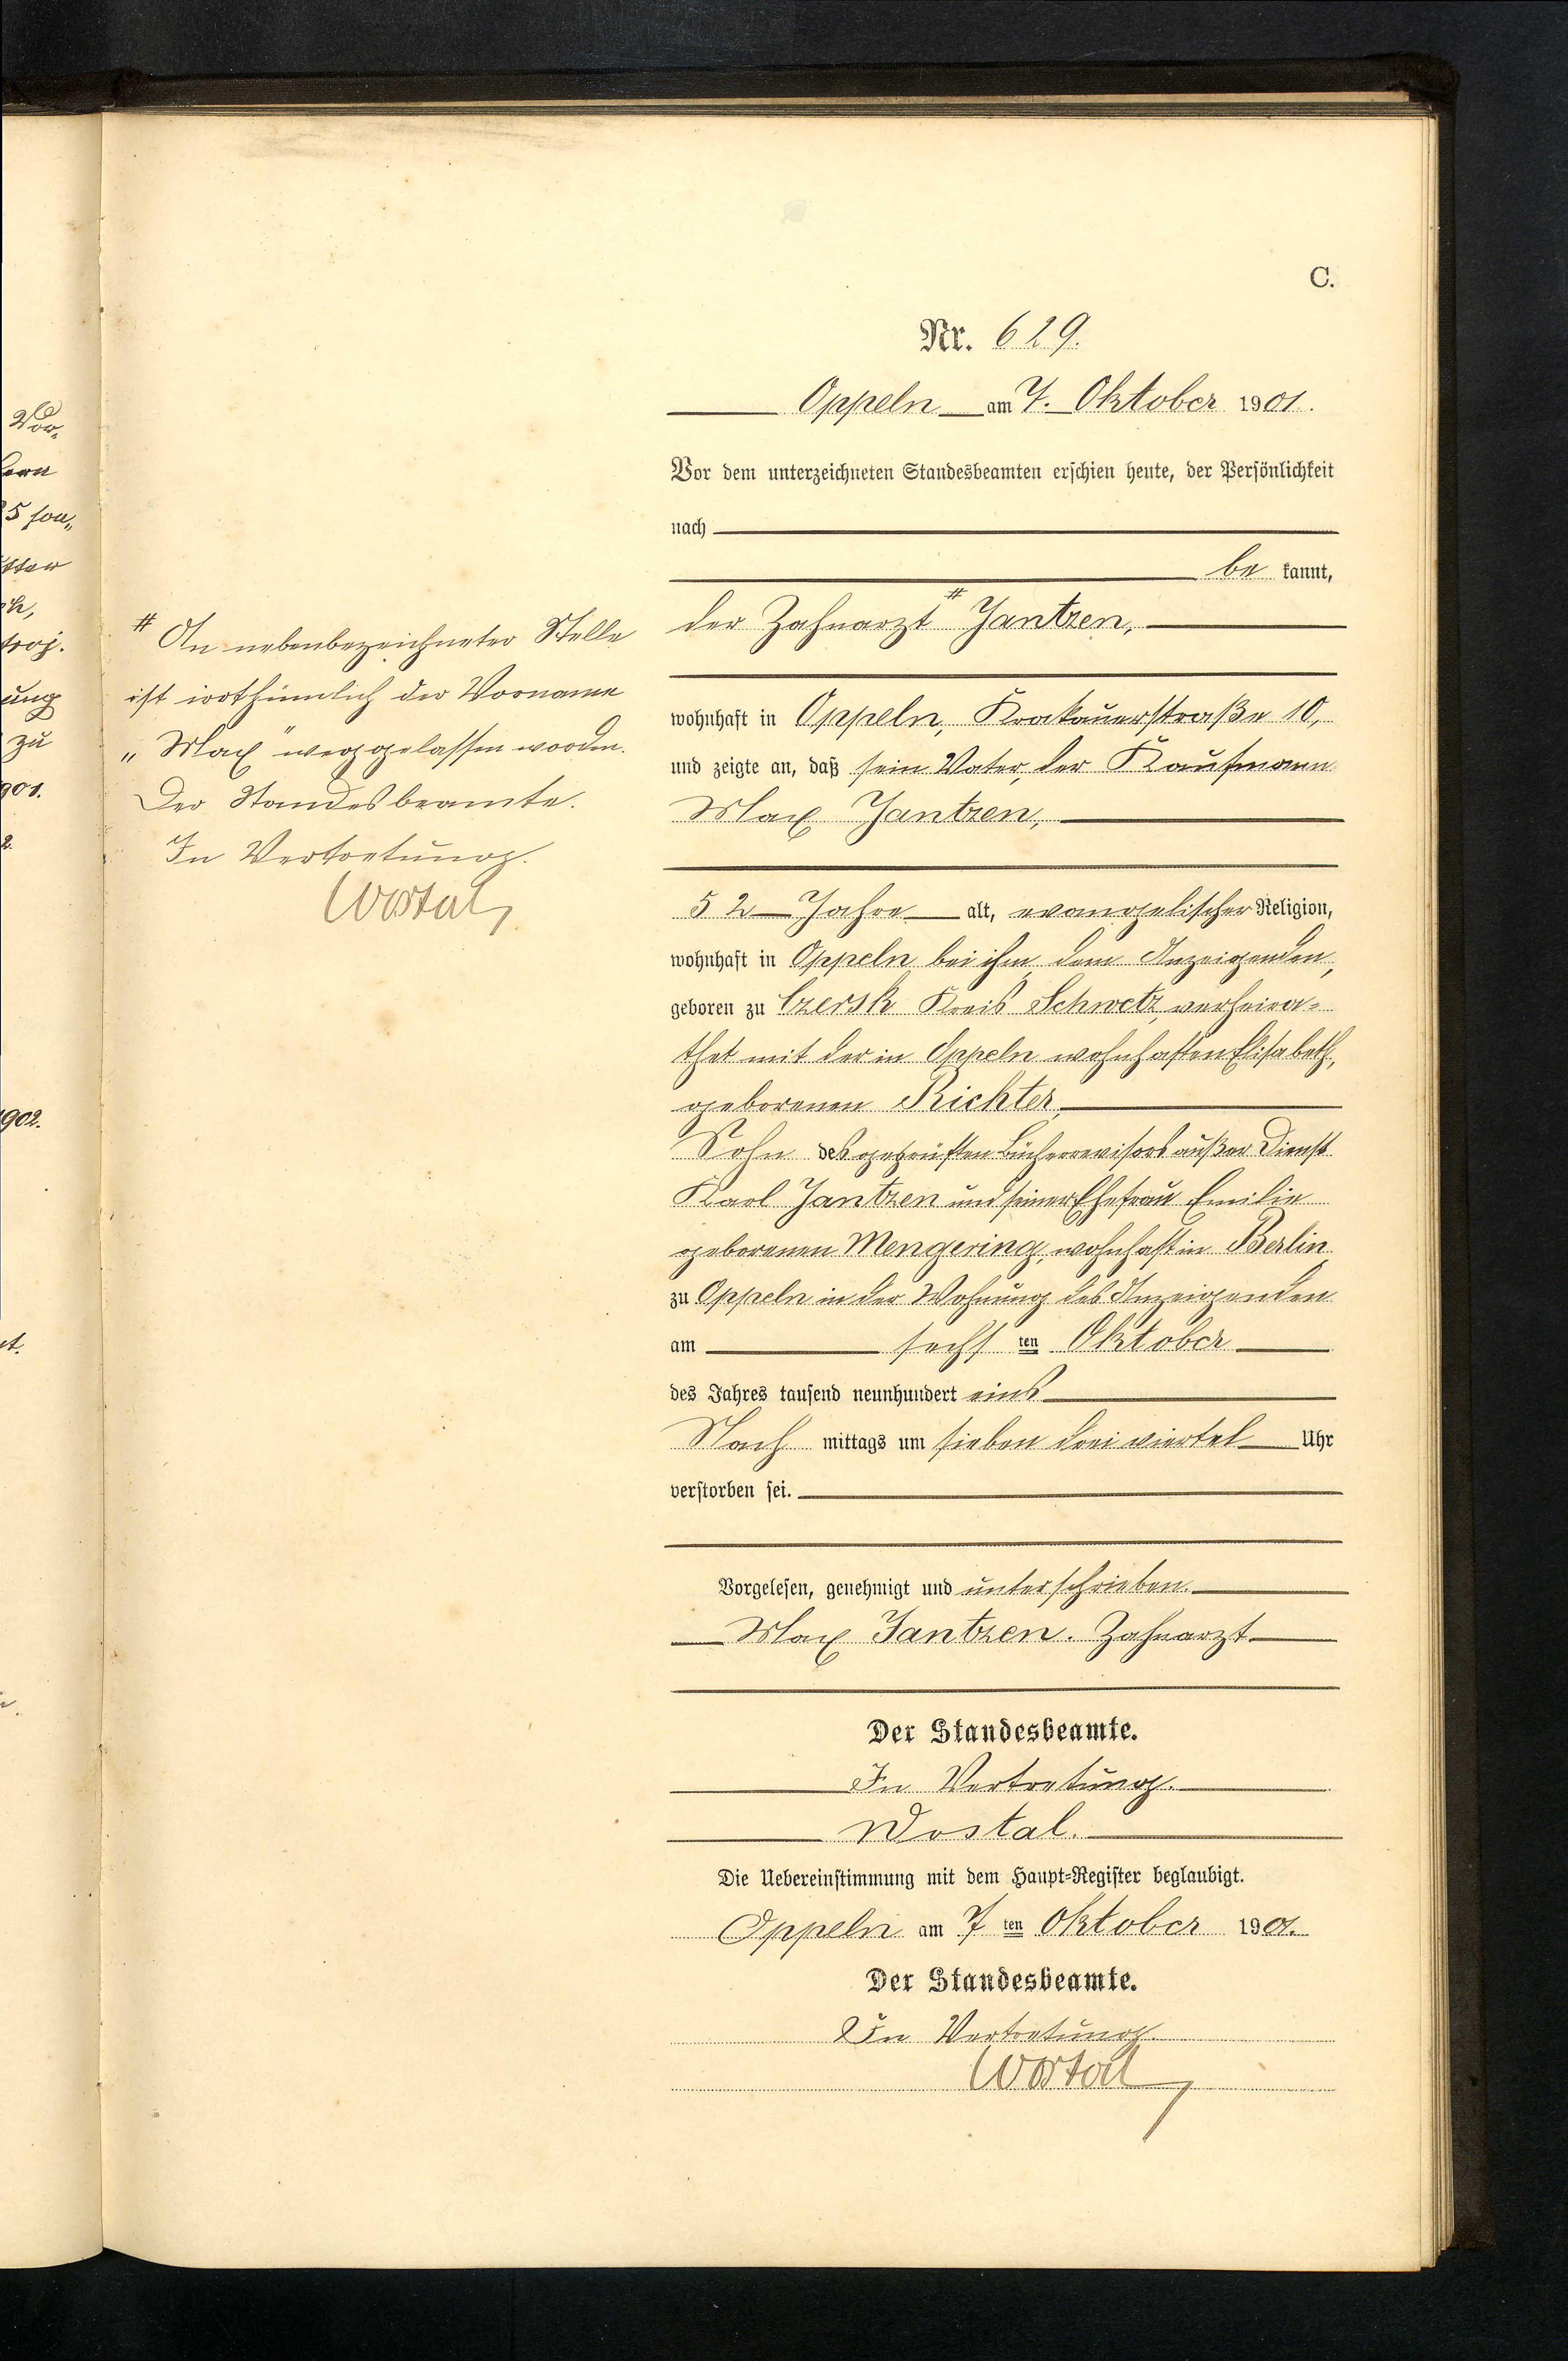 C.
Nr. 629.
Oppeln am 7. Oktober 1901.
Vor dem unterzeichneten Standesbeamten erschien heute, der Persönlichkeit
nach
be kannt,
der Zahnarzt # Jantzen,
wohnhaft in Oppeln, Krakauerstraße 10,
und zeigte an, daß sein Vater, der Kaufmann
Max Jantzen,
52 Jahre alt, evangelischer Religion,
wohnhaft in Oppeln bei ihm, dem Anzeigenden,
geboren zu Czersk Kreis Schwetz, verheira=
thet mit der in Oppeln wohnhaften Elisabeth,
geborenen Richter,
Sohn des geprüften Bücherrevisors außer Dienst
Karl Jantzen und seiner Ehefrau Emilie
geborenen Mengering, wohnhaft in Berlin,
zu Oppeln in der Wohnung des Anzeigenden
am sechs ten Oktober
des Jahres tausend neunhundert eins
Nach mittags um sieben drei viertel Uhr
verstorben sei.
Vorgelesen, genehmigt und unterschrieben.
Max Jantzen. Zahnarzt
Der Standesbeamte.
In Vertretung.
Wostal.
Die Uebereinstimmung mit dem Haupt=Register beglaubigt.
Oppeln am 7 ten Oktober 1901.
Der Standesbeamte.
In Vertretung.
Wostal
# An nebenbezeichneter Stelle
ist irrthümlich der Vorname
„Max" weggelassen worden.
Der Standesbeamte.
In Vertretung.
Wostal
Vor„
5
ung
zu
901.
2.
902.